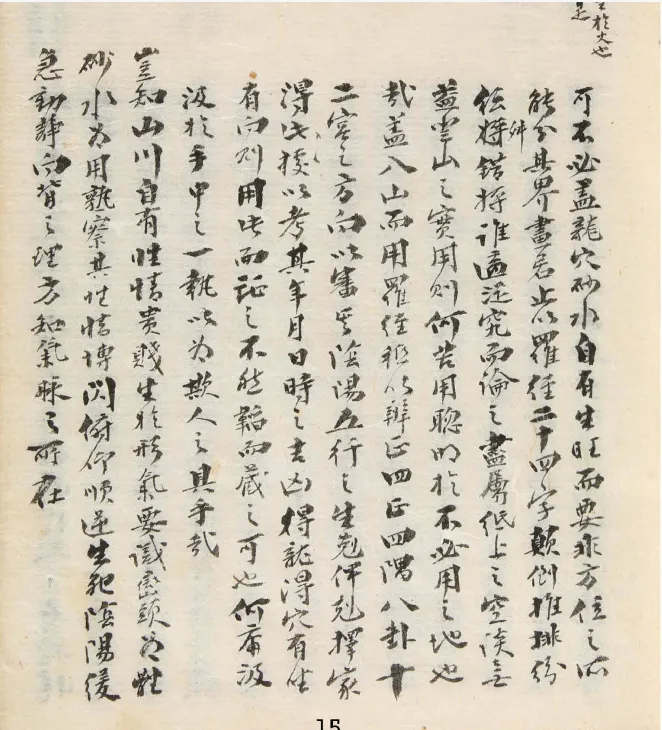 於火也
可不必盡龍穴砂水自有生旺而要非方位之所
能分其界畫若止以羅徑二十四字顛倒推排紛
紜將錯將誰適從究而論之盡屬紙上之空談無
益坐山之實用則何苦用聰明於不必用之地也
哉蓋八山而用羅徑祗以辨正四正四隅八卦十
二宮之方向以審乎陰陽五行之生剋俾剋擇家
得據以考其年月日時之吉凶得龍得穴有坐
有向則用此而証之不然韜而藏之可也何需汲
汲於手中之一執以為欺人之具乎哉
豈知山川自有性情貴賤生於形氣要識巒頭為體
砂水為用熟察其性情博閃俯仰順逆生死陰陽緩
急動靜向背之理方知氣脉之所在
15